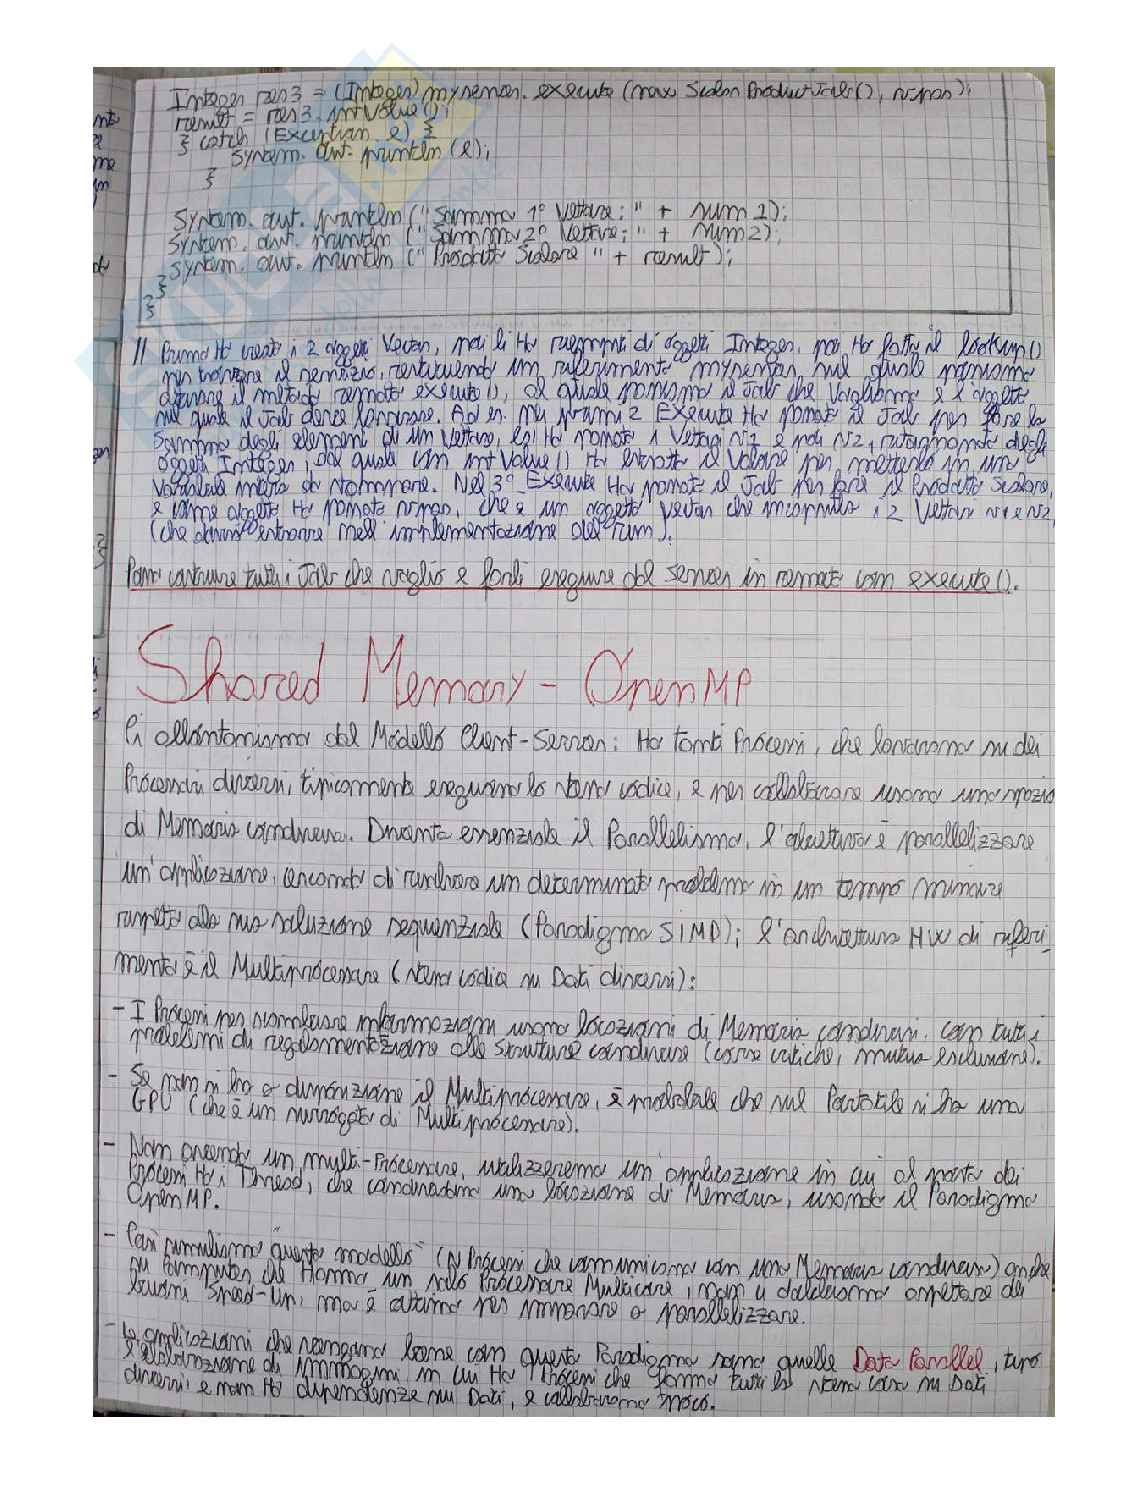 Integer res3 = (Integer) myserver.execute (new ScalarProductJob(), nspar);
result = res3.intValue();
} catch (Exception e) {
System.out.println(e);
}
System.out.println("Somma 1° Vettore: " + sum2);
System.out.println("Somma 2° Vettore: " + sum2);
System.out.println("Prodotto Scalare " + result);
}
}
// Prima Ho creato i 2 oggetti Vector, poi li Ho riempiti di oggetti Integer, poi Ho fatto il lookup()
per trovare il servizio, restituendo un riferimento myserver, sul quale possiamo
attivare il metodo remoto execute(), al quale passiamo il Job che Vogliamo e l'oggetto
sul quale il Job deve lavorare. Ad es. nei primi 2 Execute Ho passato il Job per fare la
Somma degli elementi di un Vettore, e gli Ho passato i Vettori V1 e poi V2, ritornando degli
oggetti Integer, dal quale con intValue() Ho estratto il Valore per metterlo in una
Variabile intera da stampare. Nel 3° Execute Ho passato il Job per fare il Prodotto Scalare,
e come oggetto Ho passato che è un oggetto Vector che incapsula i 2 Vettori V1 e V2
(che devono entrare nell'implementazione del run).
Posso costruire tutti i Job che voglio e farli eseguire dal Server in remoto con execute().
Shared Memory - OpenMP
Ci allontaniamo dal Modello Client-Server: Ho tanti Processi, che lavorano su dei
Processori diversi, tipicamente eseguono lo stesso codice, e per collaborare usano uno spazio
di Memoria condivisa. Diventa essenziale il Parallelismo, l'obiettivo è parallelizzare
un'applicazione, cercando di risolvere un determinato problema in un tempo minore
rispetto alla sua soluzione sequenziale (Paradigma SIMD); l'architettura HW di riferi-
mento è il Multiprocessore (stesso codice su Dati diversi):
- I Processi per scambiare informazioni usano locazioni di Memoria condivisi. con tutti i
problemi di regolamentazione alle strutture condivise (corse critiche, mutua esclusione).
- Se non si ha a disposizione il Multiprocessore, è probabile che sul Portatile si ha una
GPU (che è un surrogato di Multiprocessore).
- Non avendo un multi-Processore, utilizzeremo un'applicazione in cui al posto dei
Processi Ho i Thread, che condividono una locazione di Memoria, usando il Paradigma
OpenMP.
- Così simuliamo questo modello (N Processi che comunicano con una Memoria condivisa) anche
su Computer che Hanno un solo Processore Multicore, non ci dobbiamo aspettare dei
buoni Speed-Up, ma è ottimo per imparare a parallelizzare.
- Le applicazioni che vengono bene con questo Paradigma sono quelle Data Parallel, tipo
l'elaborazione di immagini in cui Ho Processi che fanno tutti la stessa cosa su Dati
diversi, e non Ho dipendenze sui Dati, e collaborano poco.